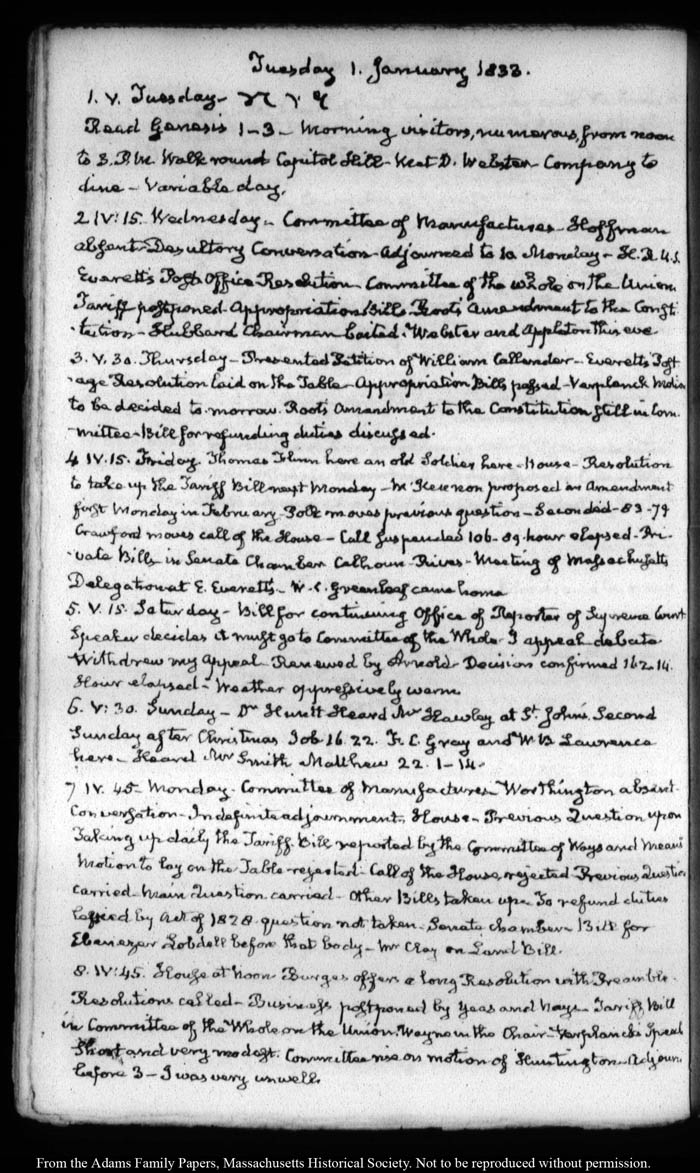 Tuesday 1. January 1833.
1. V. Tuesday-
Read Genesis 1-3- Morning visitors, numerous, from noon
to 3. P.M. Walk round Capitol Hill- Met D. Webster- Company to
dine- Variable day.
2 IV:15. Wednesday- Committee of Manufactures- Hoffman
absent- Desultory Conversation- Adjourned to 10 Monday- H.R. U.S.
Everett's Post Office Resolution- Committee of the whole on the Union
Tariff postponed- Appropriation Bills. Root's Amendment to the Consti
-tution- Hubbard Chairman baited. Webster and Appleton this eve
3. V. 30. Thursday- Presented Petition of William Callender- Everett's Post
-age Resolution laid on the Table- Appropriation Bills passed- Verplanck Motion
to be decided to-morrow. Root's Amendment to the Constitution still in Com.
-mittee- Bill for refunding duties discussed.
4 IV.15. Friday. Thomas Flinn here an old Soldier here- House- Resolution
to take up the Tariff Bill next Monday- McKennon proposed an Amendment
first Monday in February- Polk moves previous question- Seconded- 83-79
Crawford moves call of the House- Call suspended 106-89 hour elapsed- Pri-
-vate Bills- in Senate Chamber Calhoun- Rives- Meeting of Massachusetts
Delegation at E. Everett's- W. C. Greenleaf came home
5. V. 15. Saturday- Bill for continuing Office of Reporter of Supreme Court
Speaker decides it must go to Committee of the Whole- I appeal- debate
Withdrew my Appeal- Renewed by Arnold- Decision confirmed 162-14.
Hour elapsed- Weather oppressively warm
6. V:30. Sunday- Dr Hunt Heard Mr Hawley at St. John's. Second
Sunday after Christmas Job 16. 22. F. C. Gray and W. B Lawrence
here- Heard Mr Smith Matthew 22. 1-14.
7 IV. 45- Monday. Committee of Manufactures- Worthington absent
Conversation- Indefinite adjournment. House- Previous Question upon
Taking up daily the Tariff Bill reported by the Committee of Ways and Means
Motion to lay on the Table rejected. Call of the House rejected- Previous Question
carried- Main Question carried- Other Bills taken up- To refund duties
levied by Act of 1828 question not taken- Senate Chamber- Bill for
Ebenezer Lobdell before that body- Mr Clay on Land Bill.
8. IV:45. House at Noon- Burges offers a long Resolution with Preamble.
Resolutions called- Business postponed by yeas and nays- Tariff Bill
in Committee of the Whole on the Union. Wayne in the Chair- Verplanck's Speech
Short and very modest. Committee rise on motion of Huntington- Adjourn
before 3- I was very unwell.
From the Adams Family Papers, Massachusetts Historical Society. Not to be reproduced without permission.